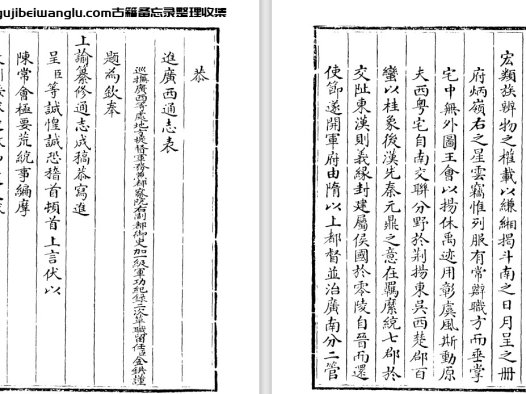 gujibeiwanglu.com古籍备忘录整理收集
恭
進廣西通志表
巡撫廣西等處地方提督軍務兼都察院右副都御史加一級軍功紀錄二次革職留任臣金鉷謹
題為欽奉
上諭纂修通志成稿恭寫進
呈臣等誠惶誠恐稽首頓首上言伏以
陳常會極要荒統事編摩
宏類族辨物之權載以縑緗揭斗南之日月呈之冊
府炳嶺右之星雲竊惟列服有常辨職方而垂掌
宅中無外圖王會以揚休禹迹用彰虞風斯動原
夫西粤宅自南交聯分野於荆揚東吳西楚郡百
蠻以桂象後漢先秦元鼎之意在羈縻統七郡於
交趾東漢則義緣封建屬侯國於零陵自晉而還
使節遂開軍府由隋以上都督並治廣南分二管